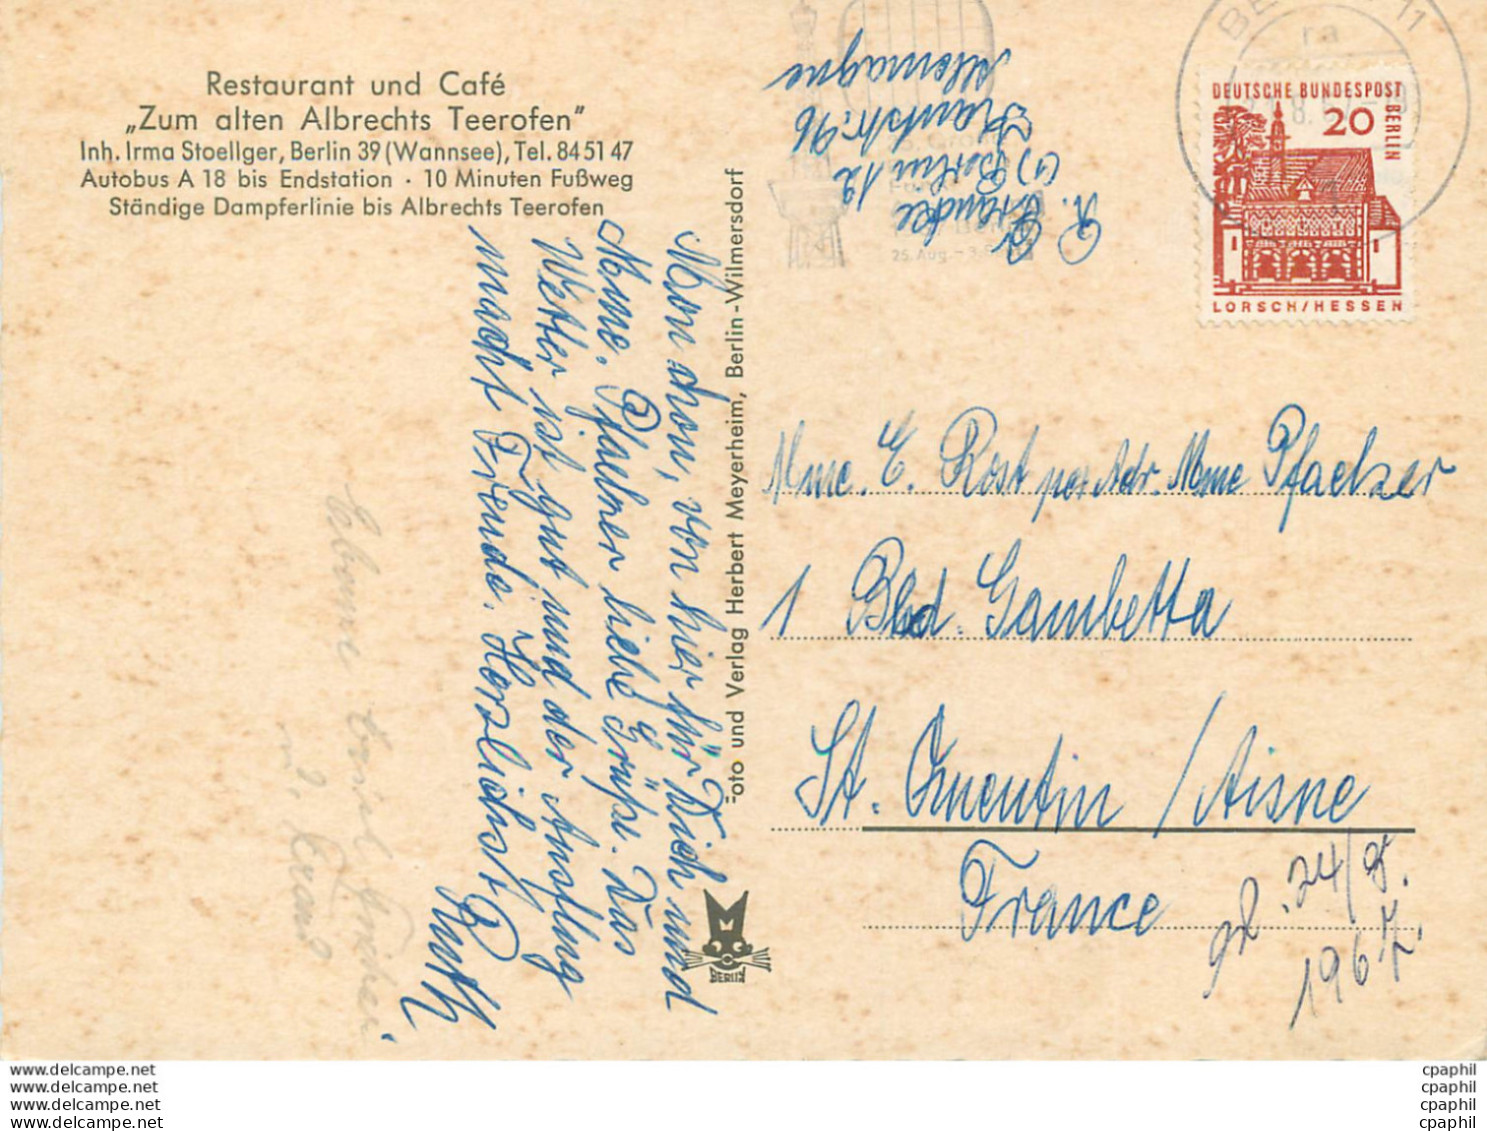 Restaurant und Café
„Zum alten Albrechts Teerofen"
Inh. Irma Stoellger, Berlin 39 (Wannsee), Tel. 84 51 47
Autobus A 18 bis Endstation · 10 Minuten Fußweg
Ständige Dampferlinie bis Albrechts Teerofen
Mon chou, von hier für Dich und
Mme. Pfaelzer liebe Grüße. Das
Wetter ist gut und der Ausflug
macht Freude. Herzlichst
Ruth
Foto und Verlag Herbert Meyerheim, Berlin-Wilmersdorf
M
BERLIN
R. Brandee
(1) Berlin 12
96
Allemagne
25. Aug. - 3.
11
DEUTSCHE BUNDESPOST
BERLIN
20
LORSCH/HESSEN
Mme. E. Rost per Adr. Mme Pfaelzer
1 Bld. Gambetta
St. Quentin / Aisne
France
24/8.
1967.
www.delcampe.net
www.delcampe.net
www.delcampe.net
www.delcampe.net
cpaphil
cpaphil
cpaphil
cpaphil